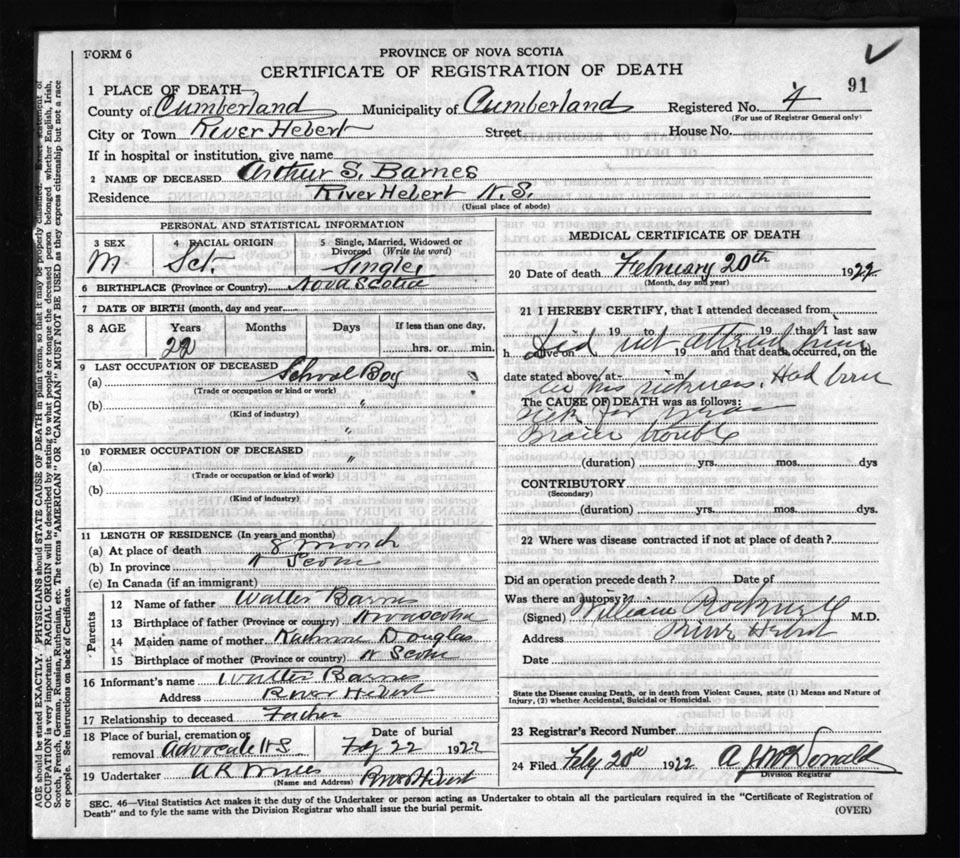 FORM 6
PROVINCE OF NOVA SCOTIA
91
CERTIFICATE OF REGISTRATION OF DEATH
1 PLACE OF DEATH
County of Cumberland Municipality of Cumberland Registered No. 4
(For use of Registrar General only)
City or Town River Hebert Street House No.
If in hospital or institution, give name
2 NAME OF DECEASED Arthur S. Barnes
Residence River Hebert N.S.
(Usual place of abode)
PERSONAL AND STATISTICAL INFORMATION
3 SEX M
4 RACIAL ORIGIN Sct.
5 Single, Married, Widowed or Divorced (Write the word) Single
6 BIRTHPLACE (Province or Country) Nova Scotia
7 DATE OF BIRTH (month, day and year)
8 AGE Years Months Days If less than one day,
22 hrs. or min.
9 LAST OCCUPATION OF DECEASED
(a) School Boy
(Trade or occupation or kind or work)
(b) "
(Kind of industry)
"
10 FORMER OCCUPATION OF DECEASED "
(a)
(Trade or occupation or kind or work)
(b)
(Kind of industry)
11 LENGTH OF RESIDENCE (In years and months)
(a) At place of death 8 month
(b) In province N Scotia
(c) In Canada (if an immigrant)
Parents
12 Name of father Walter Barnes
13 Birthplace of father (Province or country) Novascotia
14 Maiden name of mother Douglas
15 Birthplace of mother (Province or country) N Scotia
16 Informant's name Walter Barnes
Address River Hebert
17 Relationship to deceased Father
18 Place of burial, cremation or removal Advocate N S
Date of burial Feby 22 1922
19 Undertaker A R River Hebert
(Name and Address)
MEDICAL CERTIFICATE OF DEATH
20 Date of death February 20th 1922
(Month, day and year)
21 I HEREBY CERTIFY, that I attended deceased from
19 to 19 that I last saw
Did not attend him
h alive on 19 and that death occurred, on the
date stated above, at m
in his sickness. Had been
The CAUSE OF DEATH was as follows:
sick for years
Brain trouble
(duration) yrs. mos. dys
CONTRIBUTORY
(Secondary)
(duration) yrs. mos. dys.
22 Where was disease contracted if not at place of death?
Did an operation precede death? Date of
Was there an autopsy?
(Signed) William M.D.
Address River Hebert
Date
State the Disease causing Death, or in death from Violent Causes, state (1) Means and Nature of
Injury, (2) whether Accidental, Suicidal or Homicidal.
23 Registrar's Record Number
24 Filed Feby 20th 1922 A J McDonald
Division Registrar
SEC. 46—Vital Statistics Act makes it the duty of the Undertaker or person acting as Undertaker to obtain all the particulars required in the "Certificate of Registration of
Death" and to fyle the same with the Division Registrar who shall issue the burial permit.
(OVER)
AGE should be stated EXACTLY. PHYSICIANS should STATE CAUSE OF DEATH in plain terms, so that it may be properly classified. Exact statement of
OCCUPATION is very important. RACIAL ORIGIN will be described by stating to what people or tongue the deceased person belonged whether English, Irish,
Scotch, French, German, Russian, Ruthenian, etc. The terms "AMERICAN" OR "CANADIAN" MUST NOT BE USED as they express citizenship but not a race
or people. See instructions on back of Certificate.